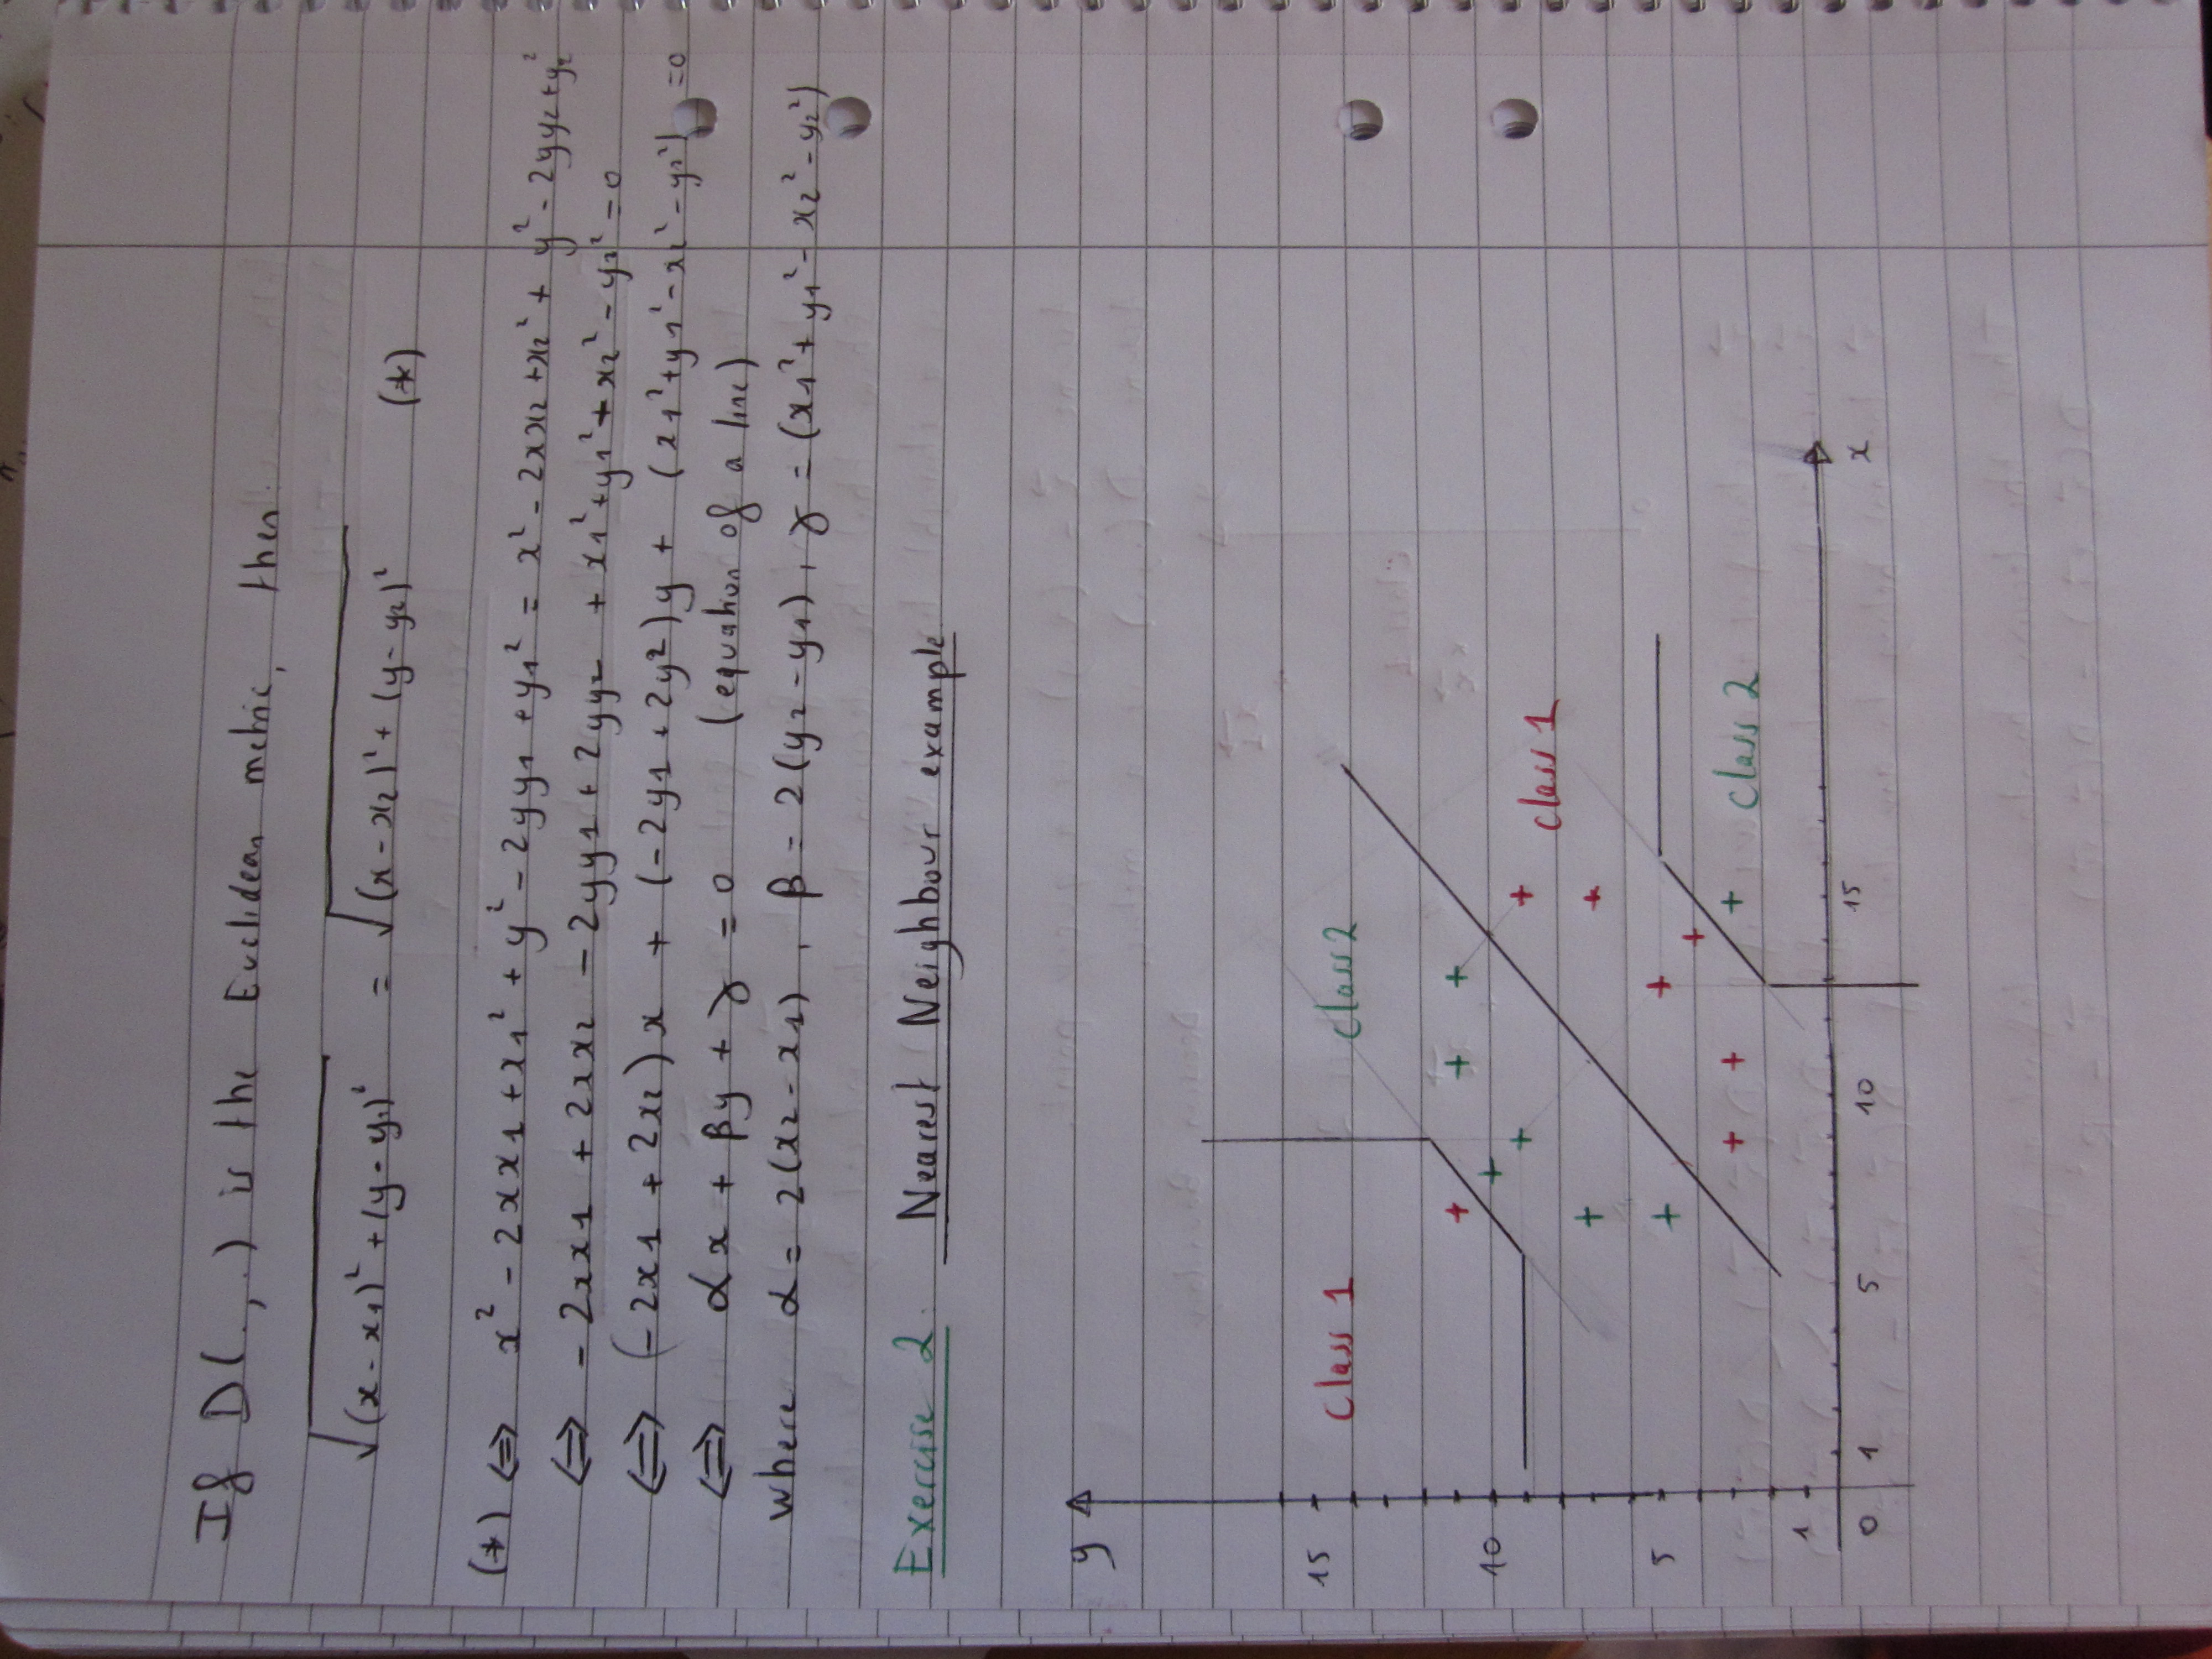 If D(.,.) is the Euclidean metric, then
√((x-x1)² + (y-y1)²) = √((x-x2)² + (y-y2)²) (*)
(*) ⇔ x² - 2xx1 + x1² + y² - 2yy1 + y1² = x² - 2xx2 + x2² + y² - 2yy2 + y2²
⇔ - 2xx1 + 2xx2 - 2yy1 + 2yy2 + x1² + y1² + x2² - y2² = 0
⇔ (-2x1 + 2x2)x + (-2y1 + 2y2)y + (x1² + y1² - x2² - y2²) = 0
⇔ αx + βy + γ = 0 (equation of a line)
where α = 2(x2 - x1), β = 2(y2 - y1), γ = (x1² + y1² - x2² - y2²)
Exercise 2. Nearest Neighbour example
y
15
Class 1 class 2
10
class 1
5
class 2
1
0 1 5 10 15 x